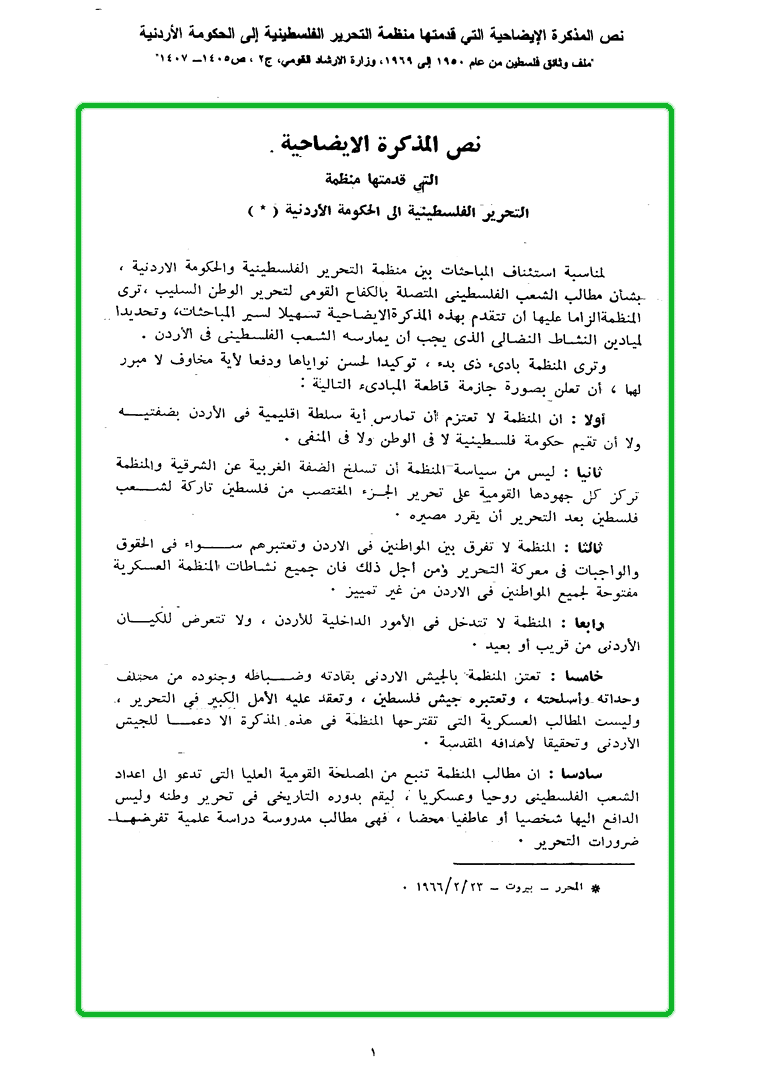 نص المذكرة الإيضاحية التي قدمتها منظمة التحرير الفلسطينية إلى الحكومة الأردنية
"ملف وثائق فلسطين من عام ١٩٥٠ إلى ١٩٦٩، وزارة الارشاد القومي، ج٢ ، ص١٤٠٥ــ ١٤٠٧"
نص المذكرة الايضاحية
التي قدمتها منظمة
التحرير الفلسطينية الى الحكومة الأردنية ( * )
لمناسبة استئناف المباحثات بين منظمة التحرير الفلسطينية والحكومة الاردنية ،
بشأن مطالب الشعب الفلسطينى المتصلة بالكفاح القومى لتحرير الوطن السليب ، ترى
المنظمة الزاما عليها ان تتقدم بهذه المذكرة الايضاحية تسهيلا لسير المباحثات، وتحديدا
لميادين النشاط النضالى الذى يجب أن يمارسه الشعب الفلسطينى فى الأردن .
وترى المنظمة بادىء ذى بدء ، توكيدا لحسن نواياها ودفعا لأية مخاوف لا مبرر
لها ، أن تعلن بصورة جازمة قاطعة المبادىء التالية :
أولا : ان المنظمة لا تعتزم أن تمارس أية سلطة اقليمية فى الأردن بضفتيـــه
ولا أن تقيم حكومة فلسطينية لا فى الوطن ولا فى المنفى .
ثانيا : ليس من سياسة المنظمة أن تسلخ الضفة الغربية عن الشرقية والمنظمة
تركز كل جهودها القومية على تحرير الجزء المغتصب من فلسطين تاركة لشـــعب
فلسطين بعد التحرير أن يقرر مصيره .
ثالثا : المنظمة لا تفرق بين المواطنين فى الاردن وتعتبرهم ســـواء فى الحقوق
والواجبات فى معركة التحرير ومن أجل ذلك فان جميع نشاطات المنظمة العسكرية
مفتوحة لجميع المواطنين فى الاردن من غير تمييز .
رابعا : المنظمة لا تتدخل فى الأمور الداخلية للأردن ، ولا تتعرض للكيـــان
الأردنى من قريب أو بعيد .
خامسا : تعتز المنظمة بالجيش الاردنى بقادته وضـــباطه وجنوده من مختلف
وحداته وأسلحته ، وتعتبره جيش فلسطين ، وتعقد عليه الأمل الكبير فى التحرير ،
وليست المطالب العسكرية التى تقترحها المنظمة فى هذه المذكرة الا دعمـــا للجيش
الأردنى وتحقيقا لأهدافه المقدسة .
سادسا : ان مطالب المنظمة تنبع من المصلحة القومية العليا التى تدعو الى اعداد
الشعب الفلسطينى روحيا وعسكريا ، ليقم بدوره التاريخى فى تحرير وطنه وليس
الدافع اليها شخصيا أو عاطفيا محضا ، فهى مطالب مدروسة دراسة علمية تفرضهـــا
ضرورات التحرير .
* المحرر – بيروت – ١٩٦٦/٢/٢٣ .
١